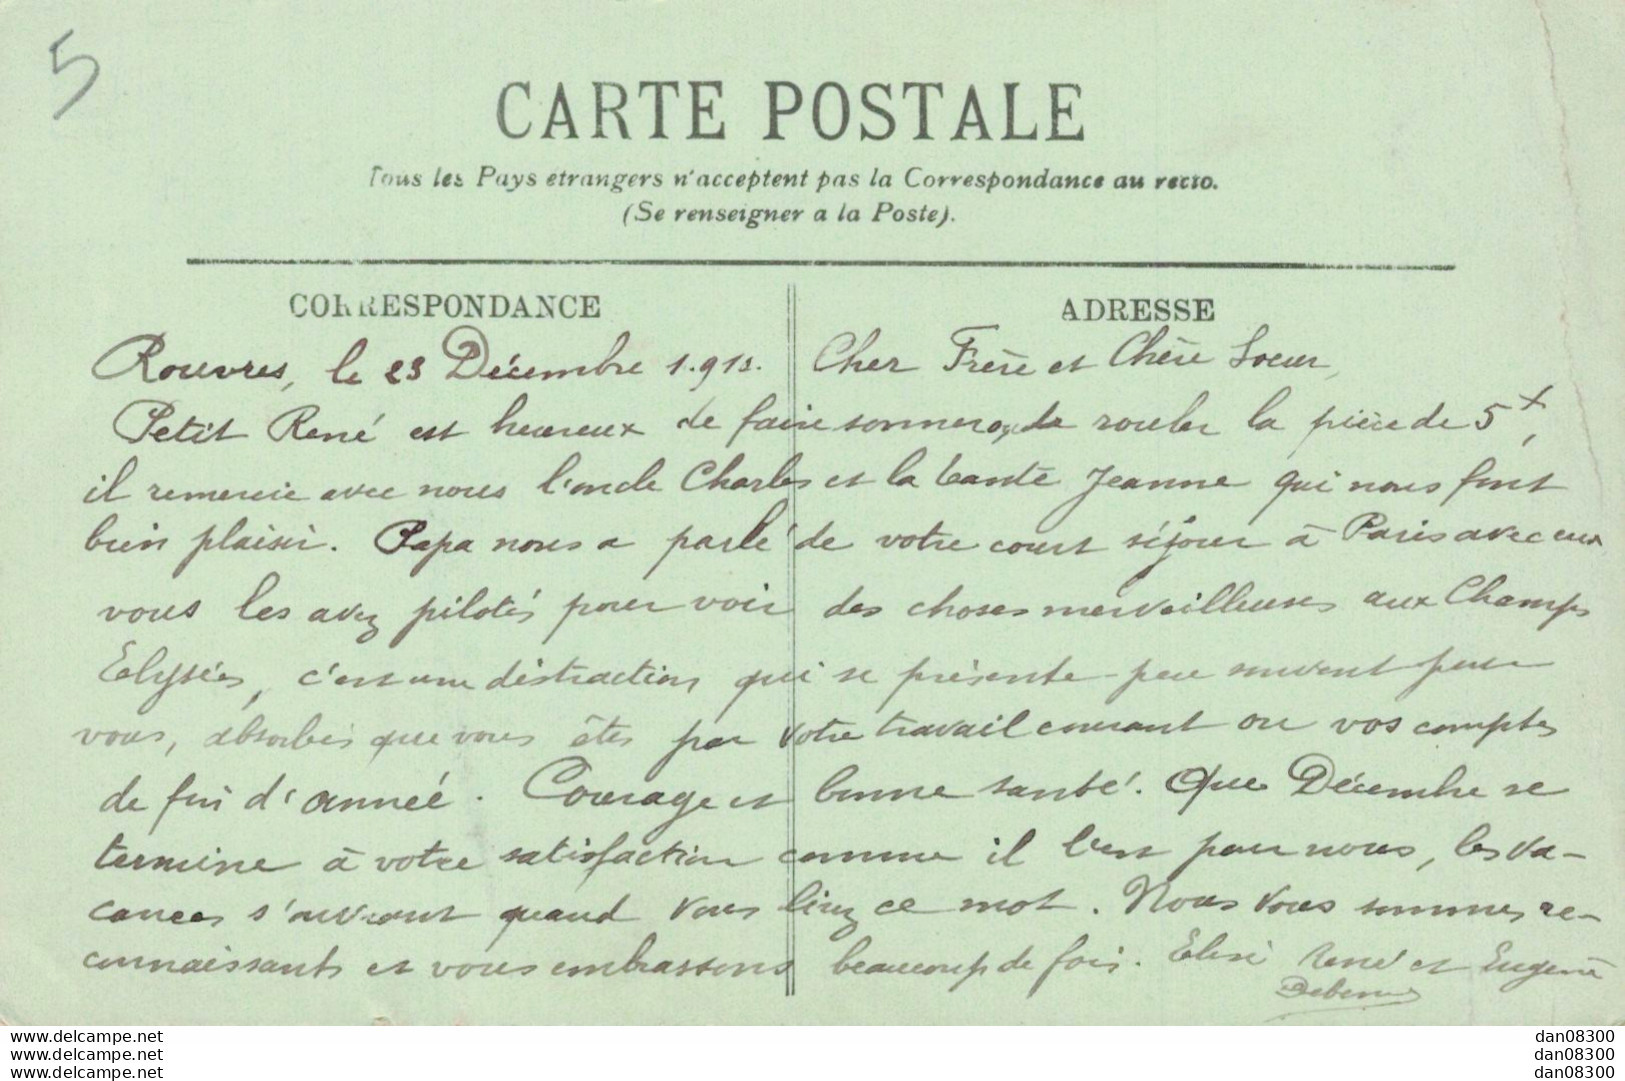 5
CARTE POSTALE
Tous les Pays etrangers n'acceptent pas la Correspondance au recto.
(Se renseigner a la Poste).
CORRESPONDANCE
ADRESSE
Rouvres, le 23 Décembre Cher Frère et Chère Soeur,
Petit René est heureux de faire sonner de rouler la pièce de 5
il remercie avec nous l'oncle Charles et la tante Jeanne qui nous font
bien plaisir. Papa nous a parlé de votre court séjour à Paris avec eux
vous les avez pilotés pour voir des choses merveilleuses aux Champs
Elysées, c'est une distraction qui se présente peu souvent pour
vous, absorbés que vous êtes par votre travail courant ou vos comptes
de fin d'année. Courage et bonne santé. Que Décembre se
termine à votre satisfaction comme il l'est pour nous, les va-
cances s'ouvront quand vous lirez ce mot. Nous vous sommes re-
connaissants et vous embrassons beaucoup de fois. René et Eugène
www.delcampe.net
www.delcampe.net
www.delcampe.net
dan08300
dan08300
dan08300